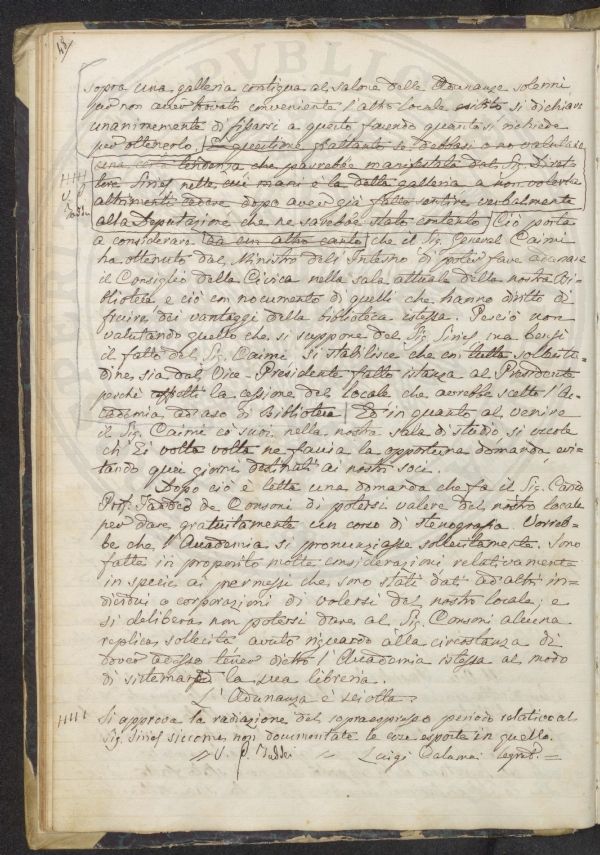 43
sopra una galleria contigua al salone delle Adunanze solenni
per non aver trovato conveniente l'altro locale si dichiara
unanimemente di fissarsi a questo facendo quanto si richiede
per ottenerlo. In questione frattanto se debbasi o no valutare
una certa tendenza che pasrebbe manifestata dal Sig. Diret
tore nelle cui mani è la detta galleria a non volerla
altrimenti cedere dopo aver già fatto sentire verbalmente
alla Deputazione che ne sarebbe stato contento. Ciò porta
a considerare da un altro canto che il Sig. General Caimi
ha ottenuto dal Ministro dell'Interno di poter fare adunare
il Consiglio della Civica nella sala attuale della nostra Bi-
blioteca e ciò con nocumento di quelli che hanno diritto di
fruire dei vantaggi della biblioteca istessa. Perciò non
valutando quello che si suppone del Sig. ma bensì
il fatto del Sig. Caimi si stabilisce che con tutta sollecitu-
dine sia dal Vice-Presidente fatta istanza al Presidente
perché la cessione del locale che avrebbe scelto l'Ac-
cademia ad uso di Biblioteca. Ed in quanto al venire
il Sig. Caimi co' suoi nella nostra sala di studio si vuole
ch'Ei volta volta ne faccia la opportuna domanda evi-
tando quei giorni destinati ai nostri soci.
Dopo ciò è letta una domanda che fa il Sig. Cav.
Prof. de Consoni di potersi valere del nostro locale
per dare gratuitamente un corso di Stenografia. Vorreb-
be che l'Accademia si pronunziasse sollecitamente. Sono
fatte in proposito molte considerazioni relativamente
in specie ai permessi che sono stati dati ad altri in-
dividui o corporazioni di valersi del nostro locale; e
si delibera non potersi dare al Sig. Consoni alcuna
replica sollecita avuto riguardo alla circostanza di
dover adesso tener dietro l'Accademia istessa al modo
di sistemare la sua libreria.
L'Adunanza è sciolta.
Si approva la radiazione del sopraespresso periodo relativo al
Sig. siccome non documentate le cose esposte in quello.
V. P. Taddei Luigi Calamai Segret.